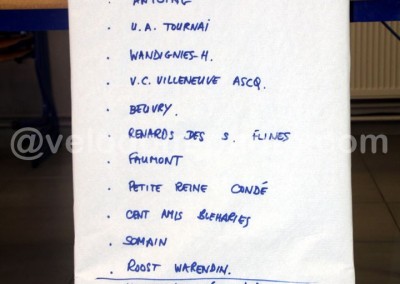 . ANTOING
. U.A. TOURNAI
. WANDIGNIES-H.
. V.C. VILLENEUVE ASCQ.
. BEUVRY.
. RENARDS DES S. FLINES
. FAUMONT
. PETITE REINE CONDÉ
. CENT AMIS BLEHARIES
. SOMAIN
. ROOST WARENDIN.